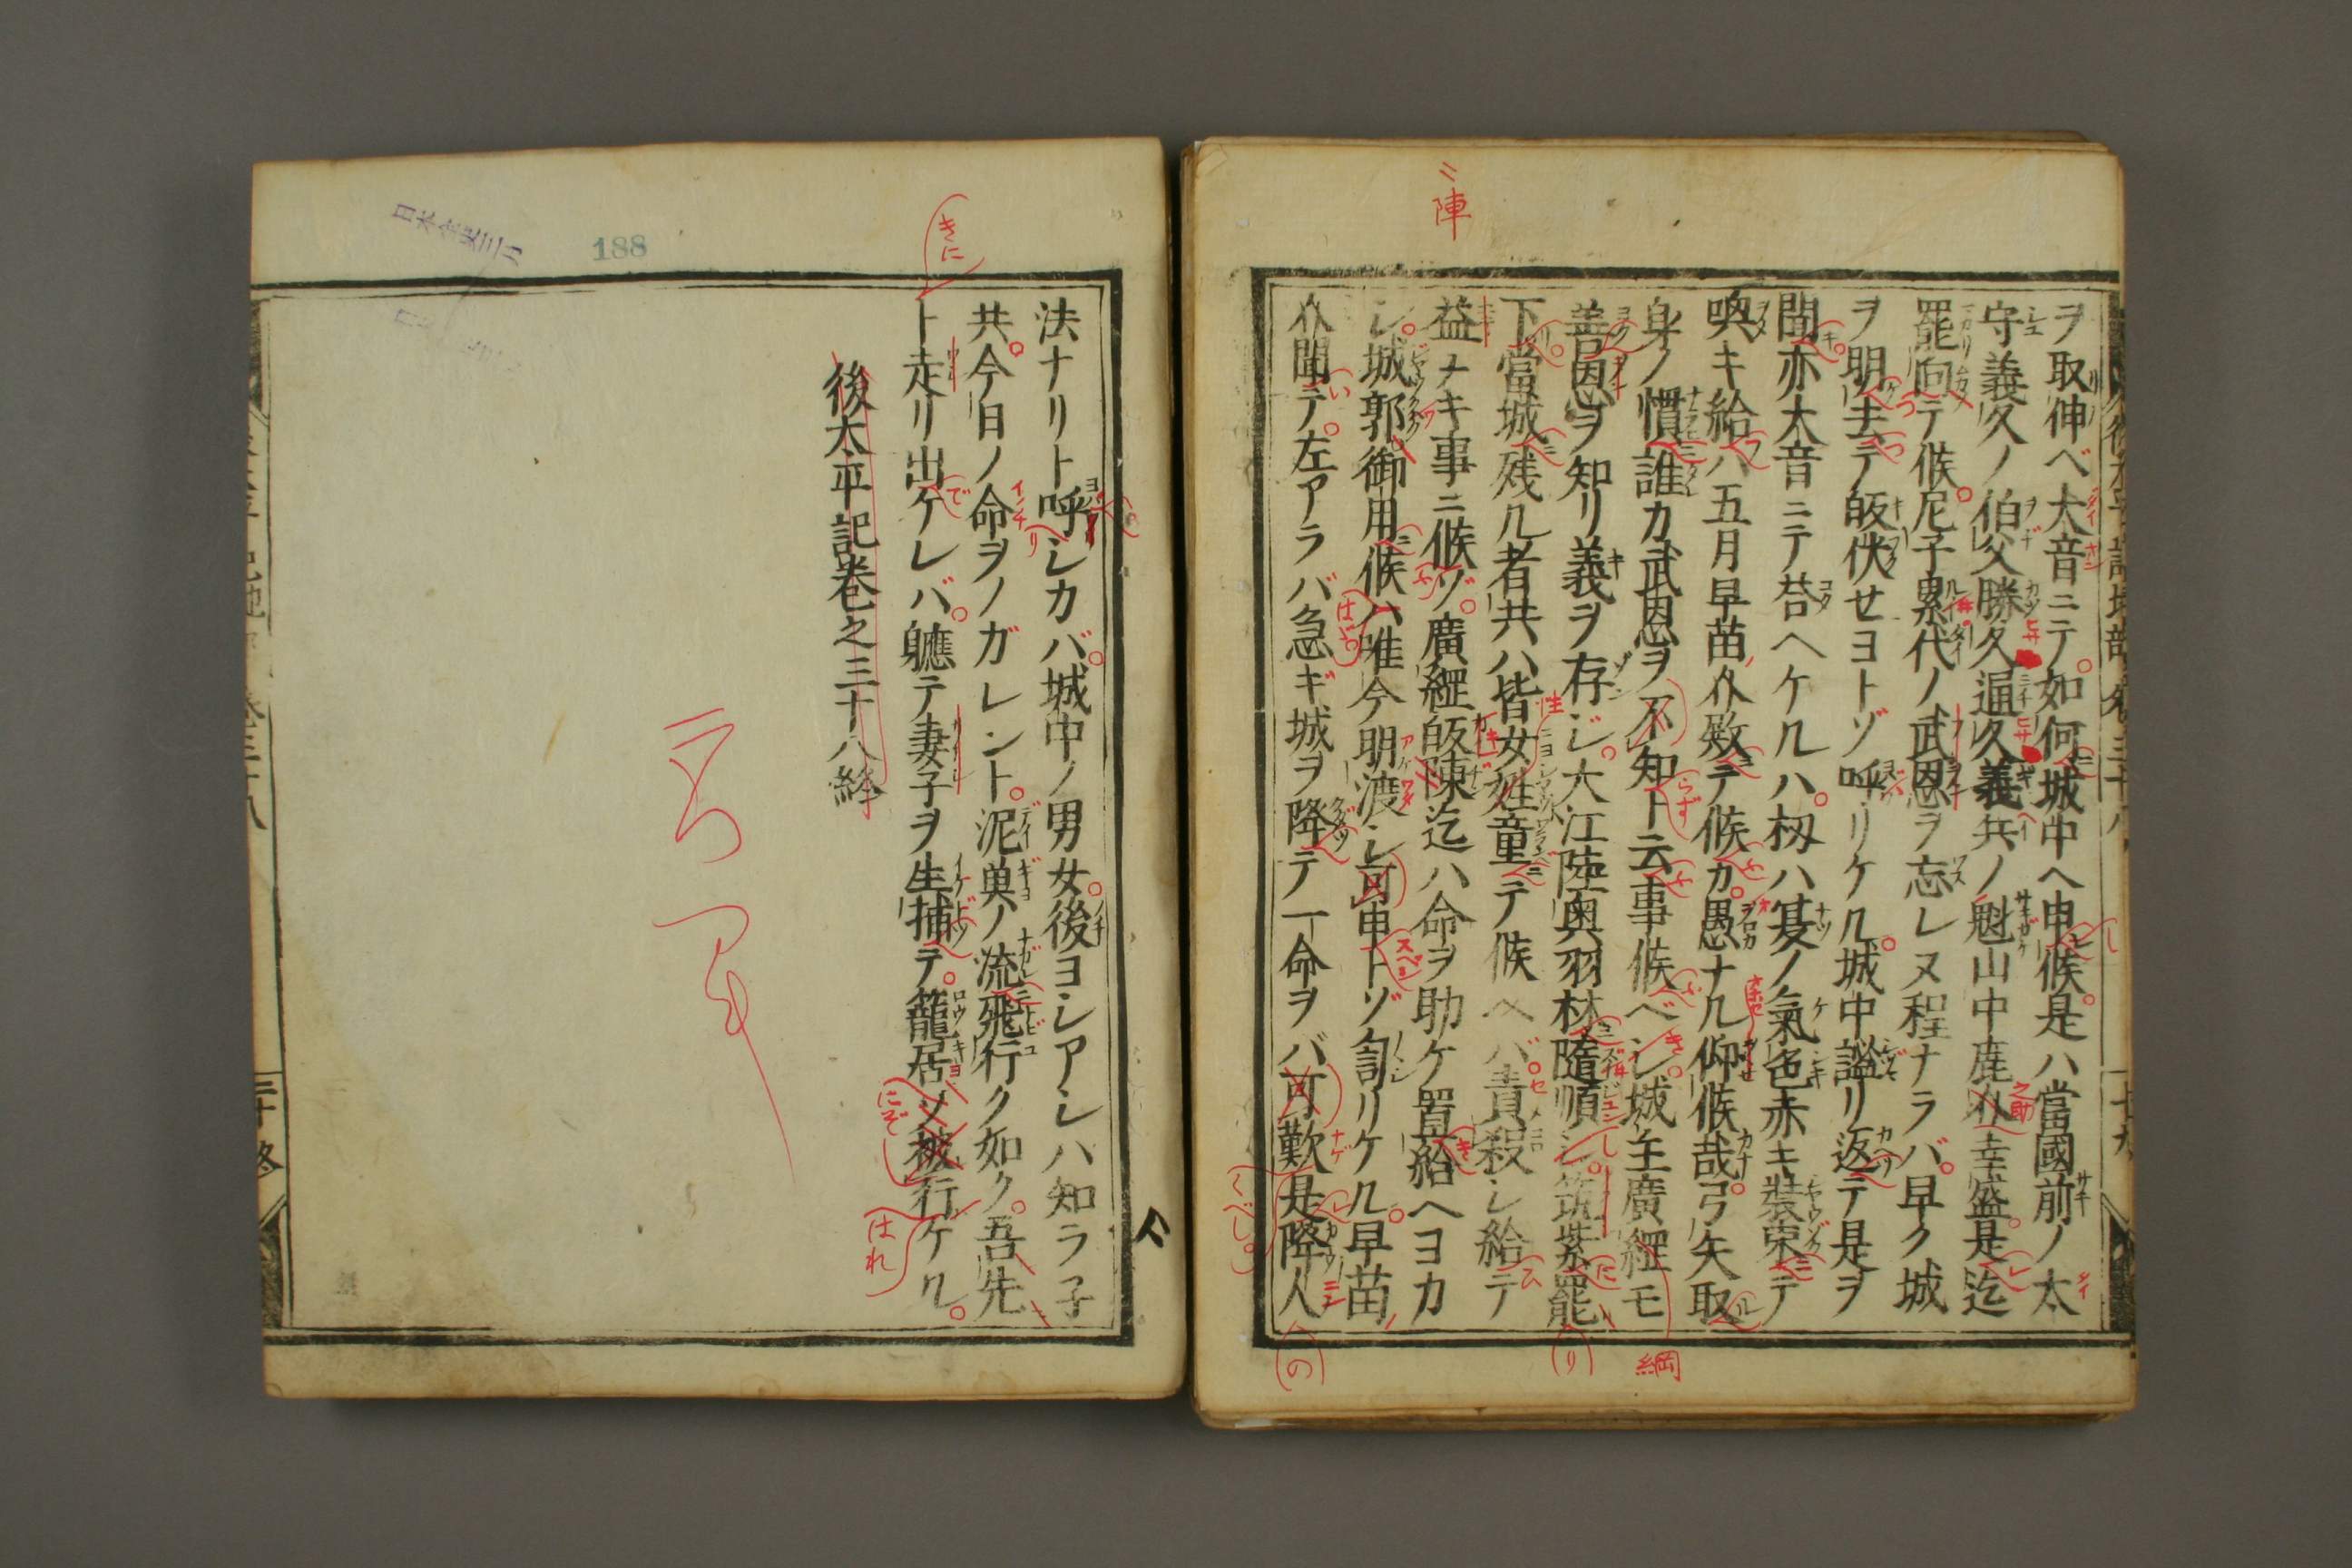 ヲ取伸ベ大音ニテ如何城中ヘ申候是ハ當國前ノ太
守義久ノ伯父勝久通久義兵ノ魁山中鹿介幸盛是迄
罷向テ候尼子累代ノ武恩ヲ忘レヌ程ナラバ早ク城
ヲ明去テ皈伏セヨトゾ呼リケル城中謐リ返テ是ヲ
聞亦大音ニテ荅ヘケルハ扨ハ夏ノ氣色赤キ裝束テ
喚キ給ハ五月早苗介殿テ候カ愚ナル仰候哉弓矢取
身ノ慣誰カ武恩ヲ不知ト云事候ベシ城主廣經モ
善恩ヲ知リ義ヲ存シ大江陸奥羽林隨順シ筑紫罷
下當城残ル者共ハ皆女姓童テ候ヘバ責殺シ給テ
益ナキ事ニ候ゾ廣經皈陳迄ハ命ヲ助ケ置給ヘヨカ
シ城郭御用候ハ唯今明渡シ可申トゾ訇リケル早苗
介聞テ左アラバ急ギ城ヲ降テ一命ヲバ可歎是降人
ニ陣
綱
法ナリト呼シカバ城中ノ男女後ヨシアシハ知ラ子
共今日ノ命ヲノガレント泥〓ノ流飛行ク如ク吾先
ト走リ出ケレバ軈テ妻子ヲ生捕テ籠居ソ被行ケル
後太平記巻之三十八終
きに
にぞし
はれ
188